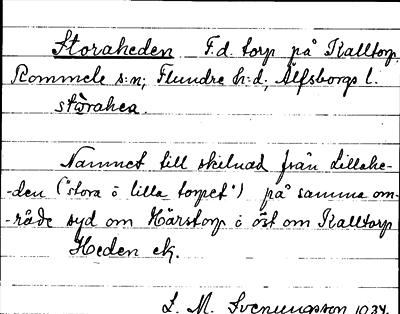 Storaheden F.d. torp på Kalltorp,
Rommele s:n; Flundre h:d; Älfsborgs l.
stòrahea.
Namnet till skilnad från Lillahe-
-den ("stora ö lilla torpet") på samma om-
-råde syd om Härstorp ö öst om Kalltorp
Heden ek.
L. M. Svenungsson 1934.